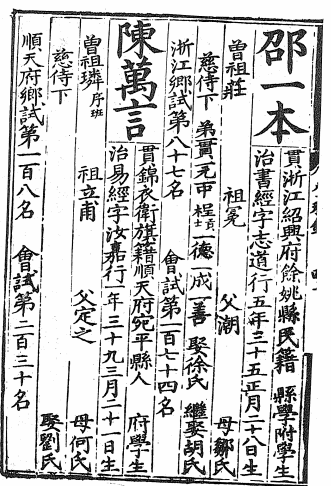 邵一本
貫浙江紹興府餘姚縣民籍 縣學附學生
治書經字志道行五年三十五正月二十八日生
曾祖莊 祖冕 父潮 母鄒氏
慈侍下 弟 一德 一成 一善 娶徐氏 繼娶胡氏
浙江鄉試第八十七名 會試第一百七十四名
陳萬言
貫錦衣衛旗籍順天府宛平縣人 府學生
治易經字汝嘉行一年三十九三月二十一日生
曾祖璘序班 祖立甫 父定之 母何氏
慈侍下 娶劉氏
順天府鄉試第一百八名 會試第二百三十名